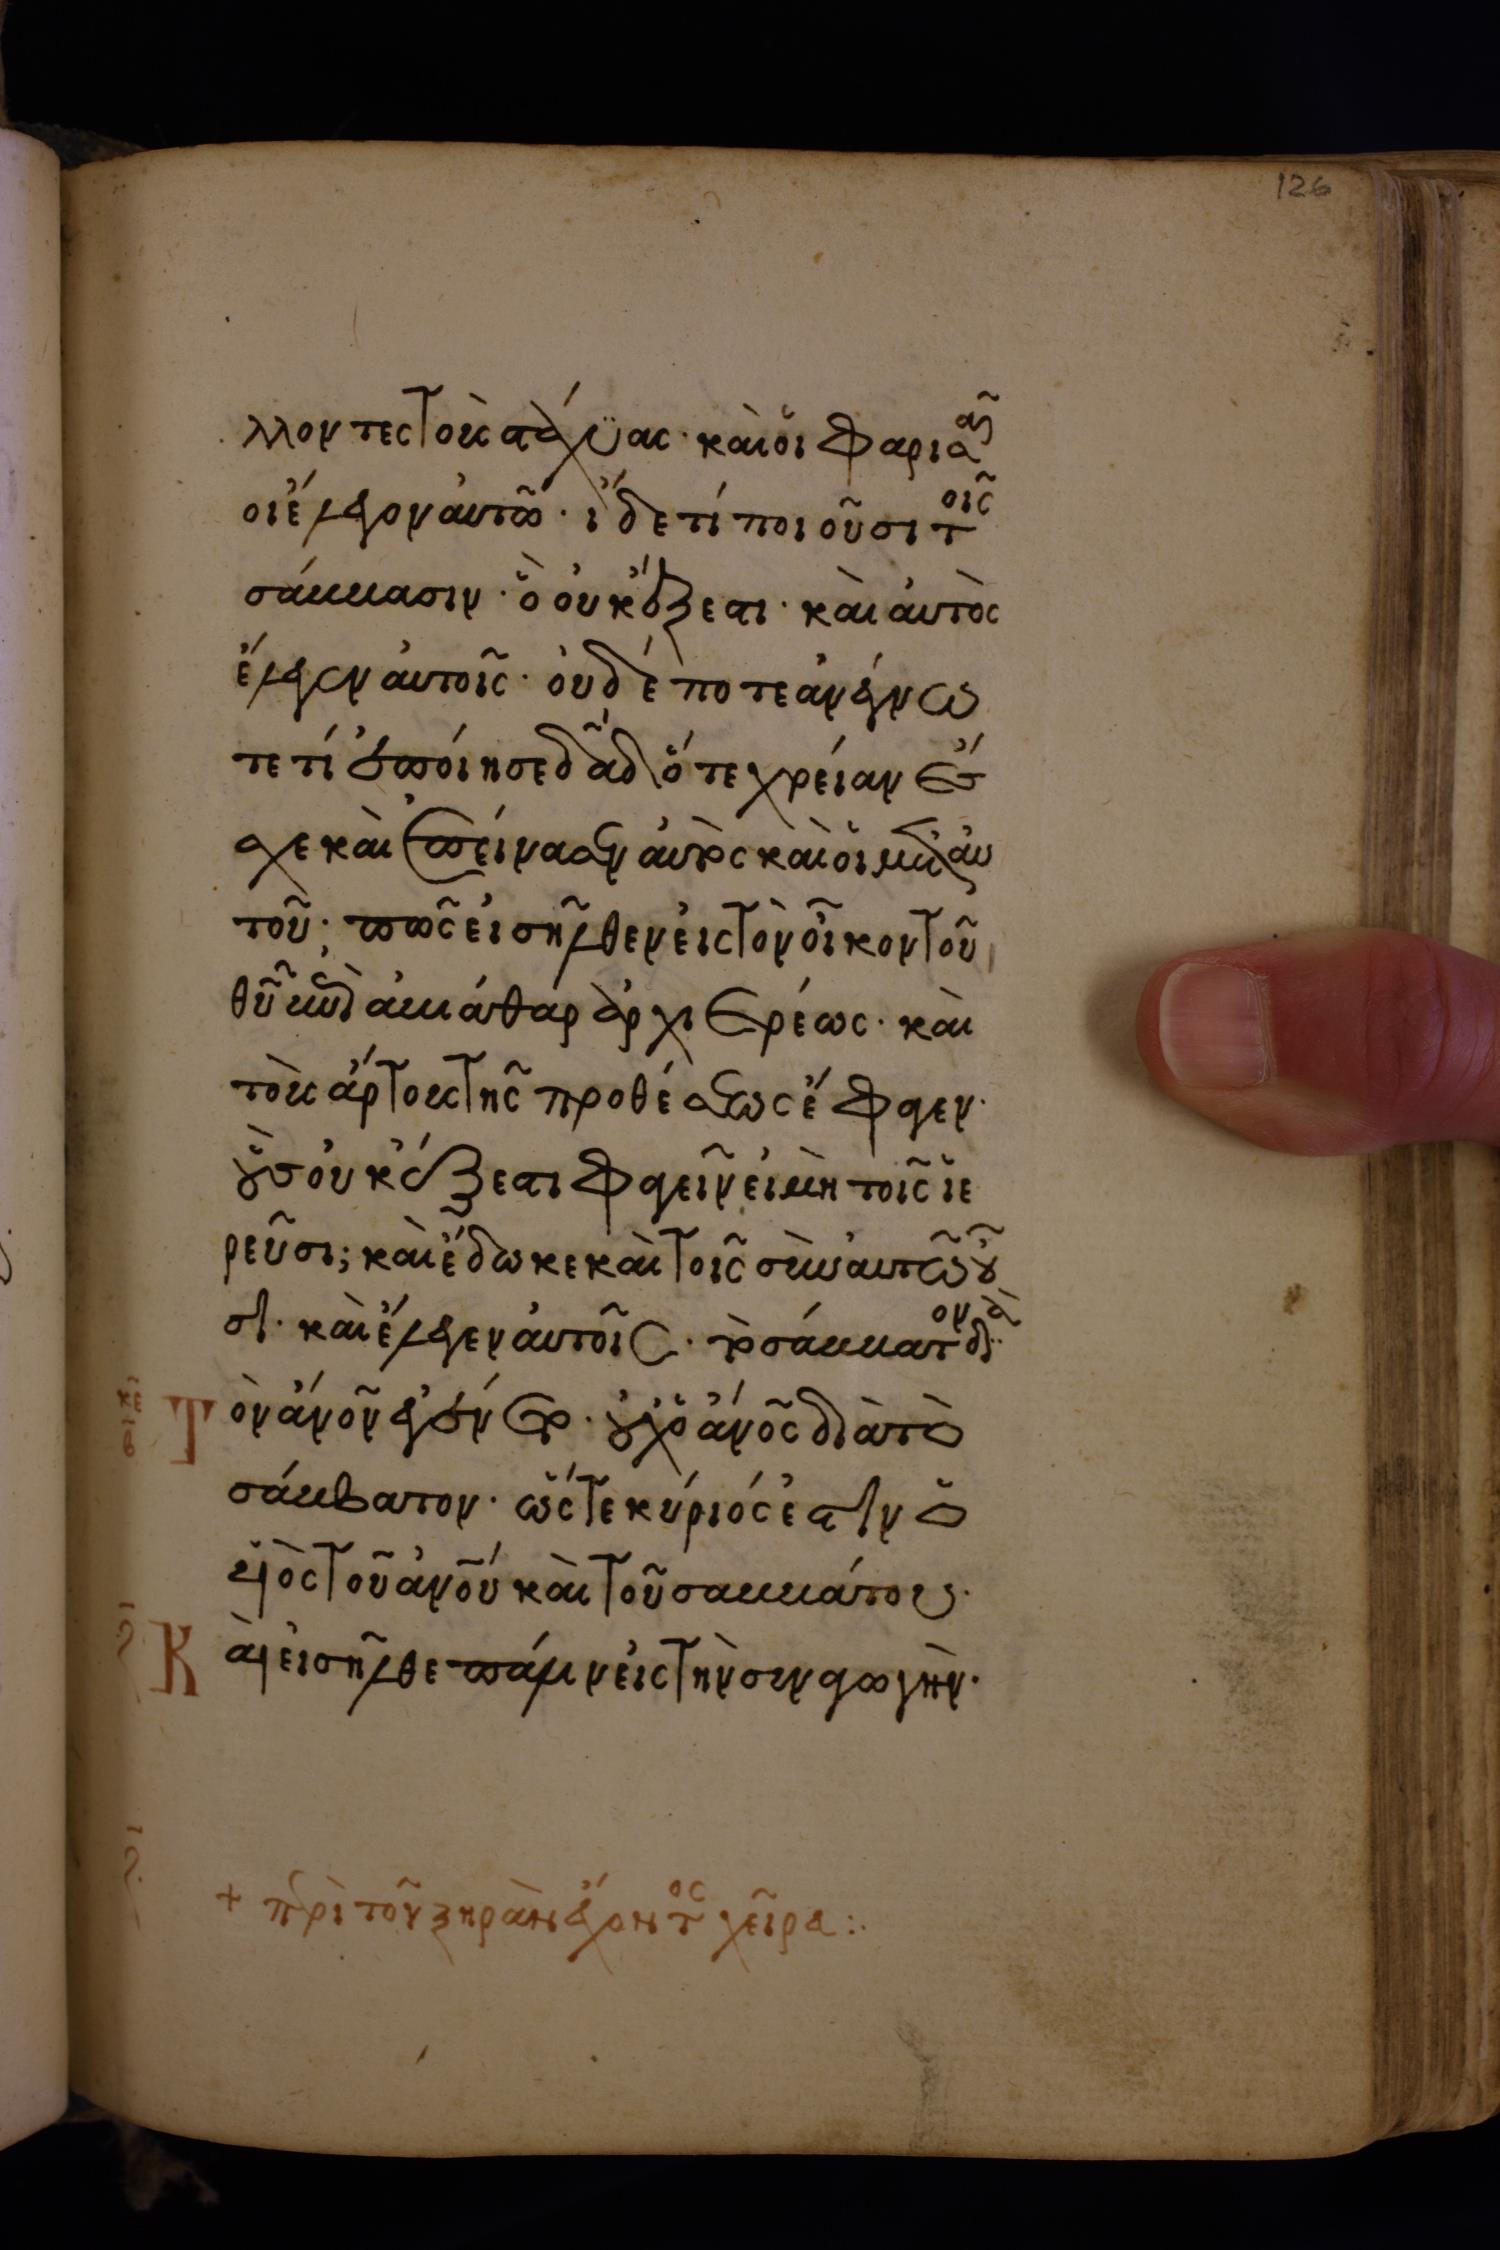 126
λλοντες τοὺς στάχϋας· καὶ οἱ φαρισαῖ
οι ἔλεγον αὐτῶ· ἴδε τί ποιοῦσι τοῖς
σάββασιν· ὃ οὐκ ἔξεστι· καὶ αὐτὸς
ἔλεγεν αὐτοῖς· οὐδέποτε ἀνέγνω
τε τί ἐποίησε δᾶδ ὅτε χρείαν ἔσ
χε καὶ ἐπείνασεν αὐτὸς καὶ οἱ μετ αὐ
τοῦ· πῶς εἰσῆλθεν εἰς τὸν οἶκον τοῦ
θῦ ἐπὶ ἀβιάθαρ ἀρχιερέως· καὶ
τοὺς ἄρτους τῆς προθέσεως ἔφαγεν·
οὓς οὐκ ἔξεστι φαγεῖν εἰ μὴ τοῖς ἱε
ρεῦσι; καὶ ἔδωκε καὶ τοῖς σὺν αὐτῶ οὖ
σι· καὶ ἔλεγεν αὐτοῖς· τὸ σάββατον διὰ
Τὸν ἄνον ἐγένετο· οὐχ ὁ ἄνος διὰ τὸ
σάββατον· ὥστε κύριός ἐστιν ὁ
υἱὸς τοῦ ἀνου καὶ τοῦ σαββάτου·
Καὶ εἰσῆλθε πάλιν εἰς τὴν συναγωγήν·
+ περὶ τοῦ ξηρὰν ἔχοντος χεῖρα :·